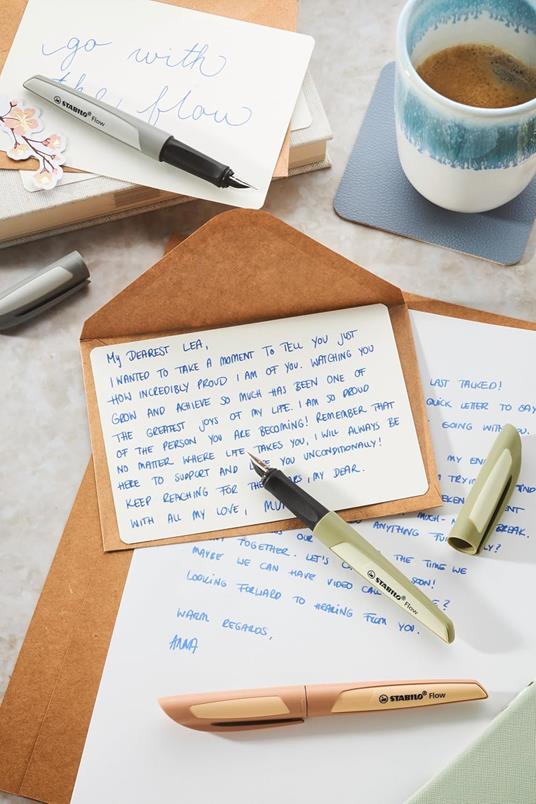 go with
the flow
STABILO® Flow
MY DEAREST LEA,
I WANTED TO TAKE A MOMENT TO TELL YOU JUST
HOW INCREDIBLY PROUD I AM OF YOU. WATCHING YOU
GROW AND ACHIEVE SO MUCH HAS BEEN ONE OF
THE GREATEST JOYS OF MY LIFE. I AM SO PROUD
OF THE PERSON YOU ARE BECOMING! REMEMBER THAT
NO MATTER WHERE LIFE TAKES YOU, I WILL ALWAYS BE
HERE TO SUPPORT AND YOU UNCONDITIONALLY!
KEEP REACHING FOR THE , MY DEAR.
WITH ALL MY LOVE,
LAST TALKED!
QUICK LETTER TO SAY
GOING WITH YOU.
MY
BREAK.
ANYTHING
TOGETHER. LET'S THE TIME WE
MAYBE WE CAN HAVE VIDEO SOON!
LOOKING FORWARD TO HEARING FROM YOU.
WARM REGARDS,
ANNA
STABILO® Flow
STABILO® Flow